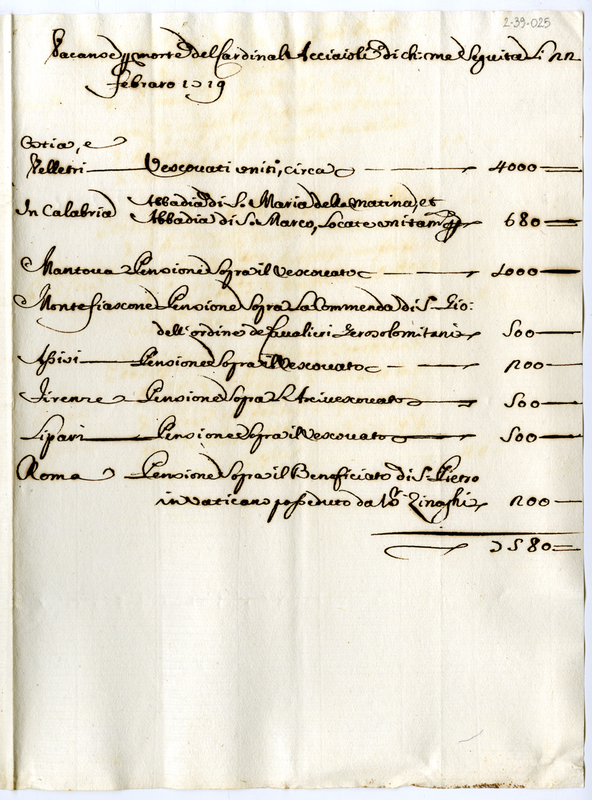 2-39-025
Vacanze p morte del Cardinal Acciaioli di ch: me: Seguita li 22
Febraro 1719
Ostia, e
Velletri Vescovati uniti, circa 4000
In Calabria Abbadia di S. Maria della matina, et
Abbadia di S. Marco, locate unitam.te p 680
Mantova Pensione Sopra il Vescovato 1000
Montefiascone Pensione Sopra la Commenda di S. Gio:
dell' ordine de Cavalieri Gerosolomitani 500
Assisi Pensione Sopra il Vescovato 200
Firenze Pensione Sopra l'Arcivescovato 500
Lipari Pensione Sopra il Vescovato 500
Roma Pensione Sopra il Beneficiato di S. Pietro
in Vaticano posseduto da Zinoghi 200
7580